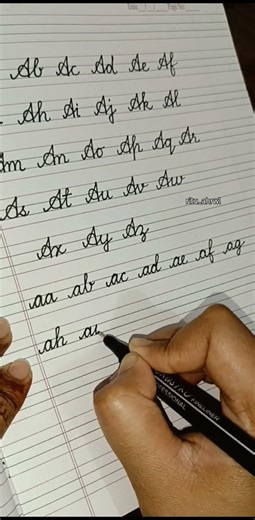 Date Page No.
Ab Ac Ad Ae Af
Ah Ai Aj Ak Al
Am An Ao Ap Aq Ar
As At Au Av Aw
ritu.ahrwl
Ax Ay Az
aa ab ac ad ae af ag
ah